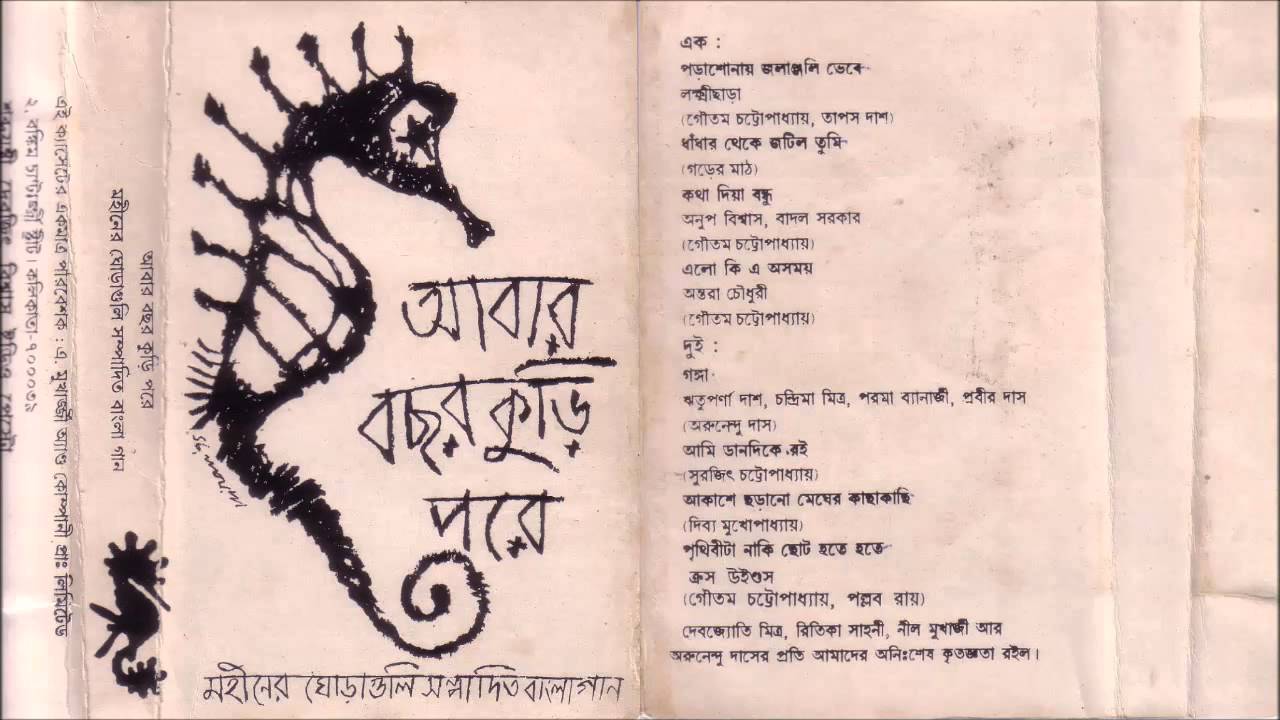 এই ক্যাসেটের একমাত্র পরিবেশক : এ. মুখার্জী অ্যাণ্ড কোম্পানী প্রাঃ লিমিটেড
২, বঙ্কিম চ্যাটার্জী স্ট্রীট। কলিকাতা-৭০০০৭৩
আবার বছর কুড়ি পরে
মহীনের ঘোড়াগুলি সম্পাদিত বাংলা গান
আবার
বছর কুড়ি
পরে
মহীনের ঘোড়াগুলি সম্পাদিত বাংলা গান
এক :
পড়াশোনায় জলাঞ্জলি ভেবে
লক্ষ্মীছাড়া
(গৌতম চট্টোপাধ্যায়, তাপস দাশ)
ধাঁধার থেকে জটিল তুমি
(গড়ের মাঠ)
কথা দিয়া বন্ধু
অনুপ বিশ্বাস, বাদল সরকার
(গৌতম চট্টোপাধ্যায়)
এলো কি এ অসময়
অন্তরা চৌধুরী
(গৌতম চট্টোপাধ্যায়)
দুই :
গঙ্গা
ঋতুপর্ণা দাশ, চন্দ্রিমা মিত্র, পরমা ব্যানার্জী, প্রবীর দাস
(অরুনেন্দু দাস)
আমি ডানদিকে রই
(সুরজিৎ চট্টোপাধ্যায়)
আকাশে ছড়ানো মেঘের কাছাকাছি
(দিব্য মুখোপাধ্যায়)
পৃথিবীটা নাকি ছোট হতে হতে
ক্রস উইণ্ডস
(গৌতম চট্টোপাধ্যায়, পল্লব রায়)
দেবজ্যোতি মিত্র, রিতিকা সাহনী, নীল মুখার্জী আর
অরুনেন্দু দাসের প্রতি আমাদের অনিঃশেষ কৃতজ্ঞতা রইল।